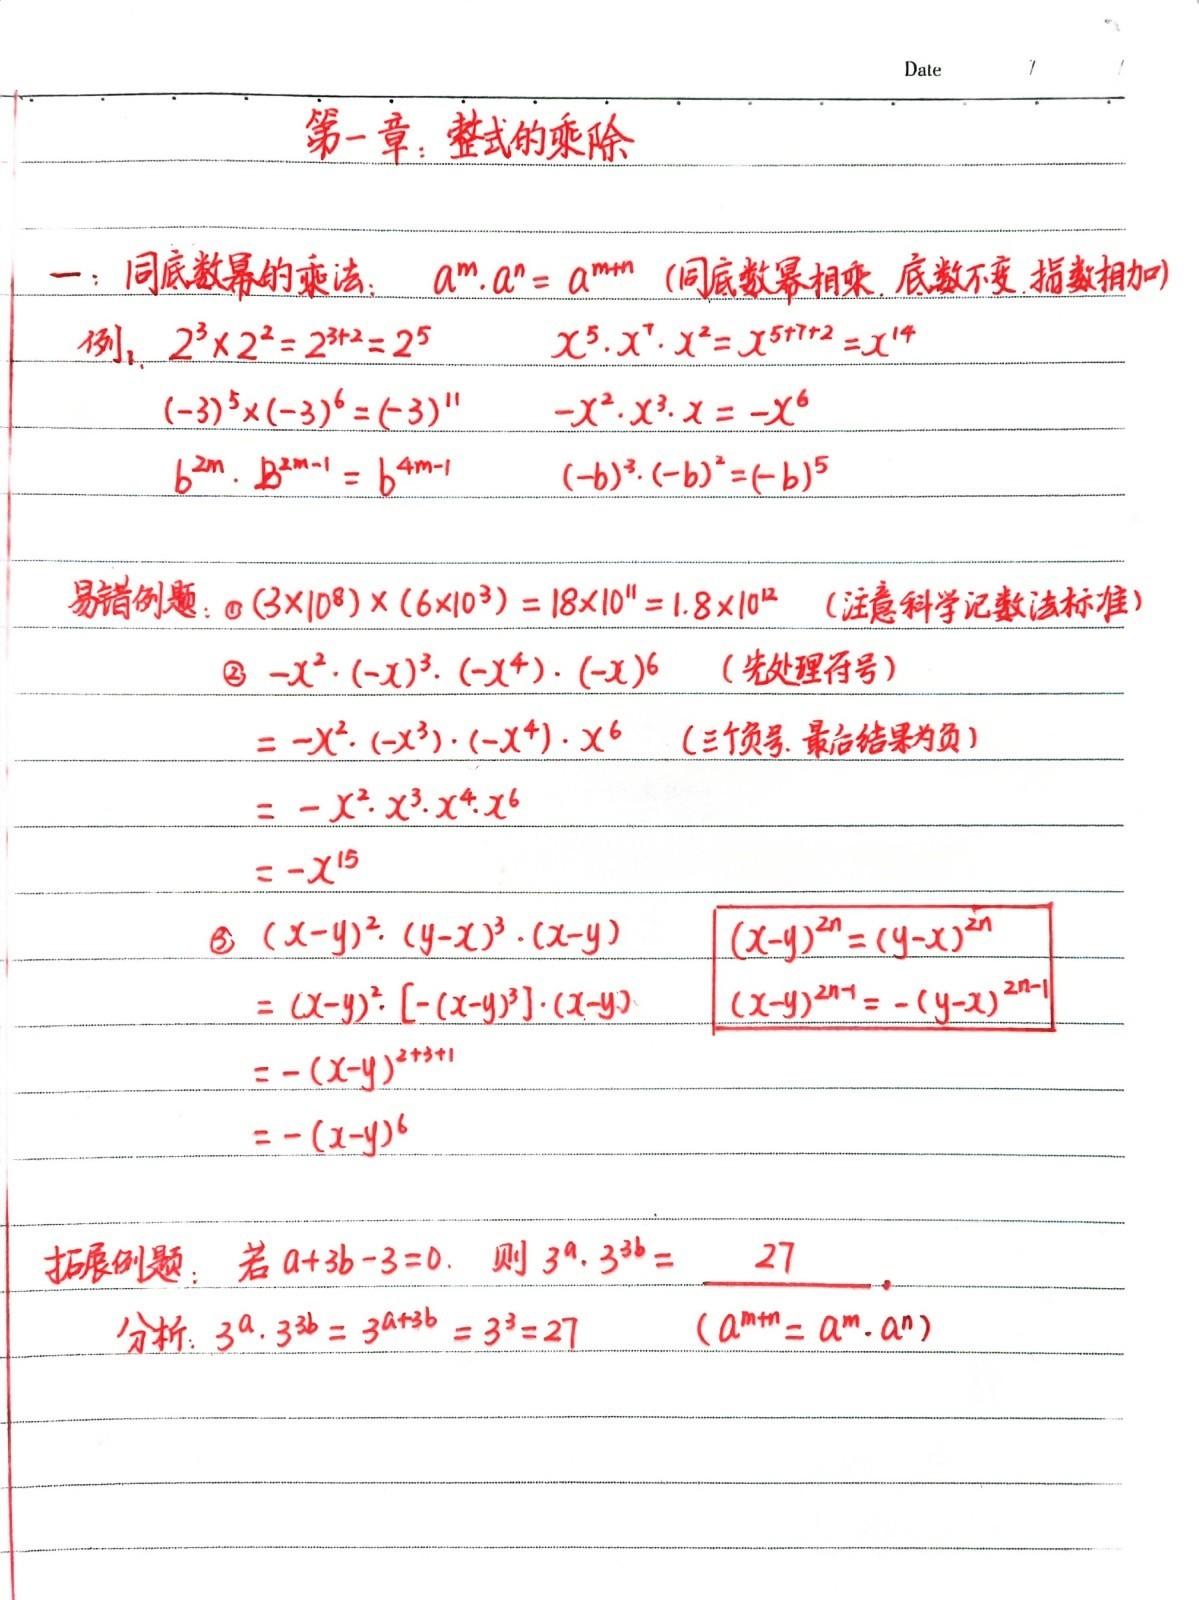 Date / /
第一章：整式的乘除
一：同底数幂的乘法： aᵐ·aⁿ = aᵐ⁺ⁿ （同底数幂相乘，底数不变，指数相加）
例： 2³×2² = 2³⁺² = 2⁵ x⁵·x⁷·x² = x⁵⁺⁷⁺² = x¹⁴
(-3)⁵×(-3)⁶ = (-3)¹¹ -x²·x³·x = -x⁶
b²ᵐ·b²ᵐ⁻¹ = b⁴ᵐ⁻¹ (-b)³·(-b)² = (-b)⁵
易错例题：① (3×10⁸)×(6×10³) = 18×10¹¹ = 1.8×10¹² （注意科学记数法标准）
② -x²·(-x)³·(-x⁴)·(-x)⁶ （先处理符号）
= -x²·(-x³)·(-x⁴)·x⁶ （三个负号，最后结果为负）
= -x²·x³·x⁴·x⁶
= -x¹⁵
③ (x-y)²·(y-x)³·(x-y) (x-y)²ⁿ = (y-x)²ⁿ
= (x-y)²·[-(x-y)³]·(x-y) (x-y)²ⁿ⁻¹ = -(y-x)²ⁿ⁻¹
= -(x-y)²⁺³⁺¹
= -(x-y)⁶
拓展例题：若a+3b-3=0. 则3ᵃ·3³ᵇ = 27.
分析：3ᵃ·3³ᵇ = 3ᵃ⁺³ᵇ = 3³ = 27 (aᵐ⁺ⁿ = aᵐ·aⁿ)